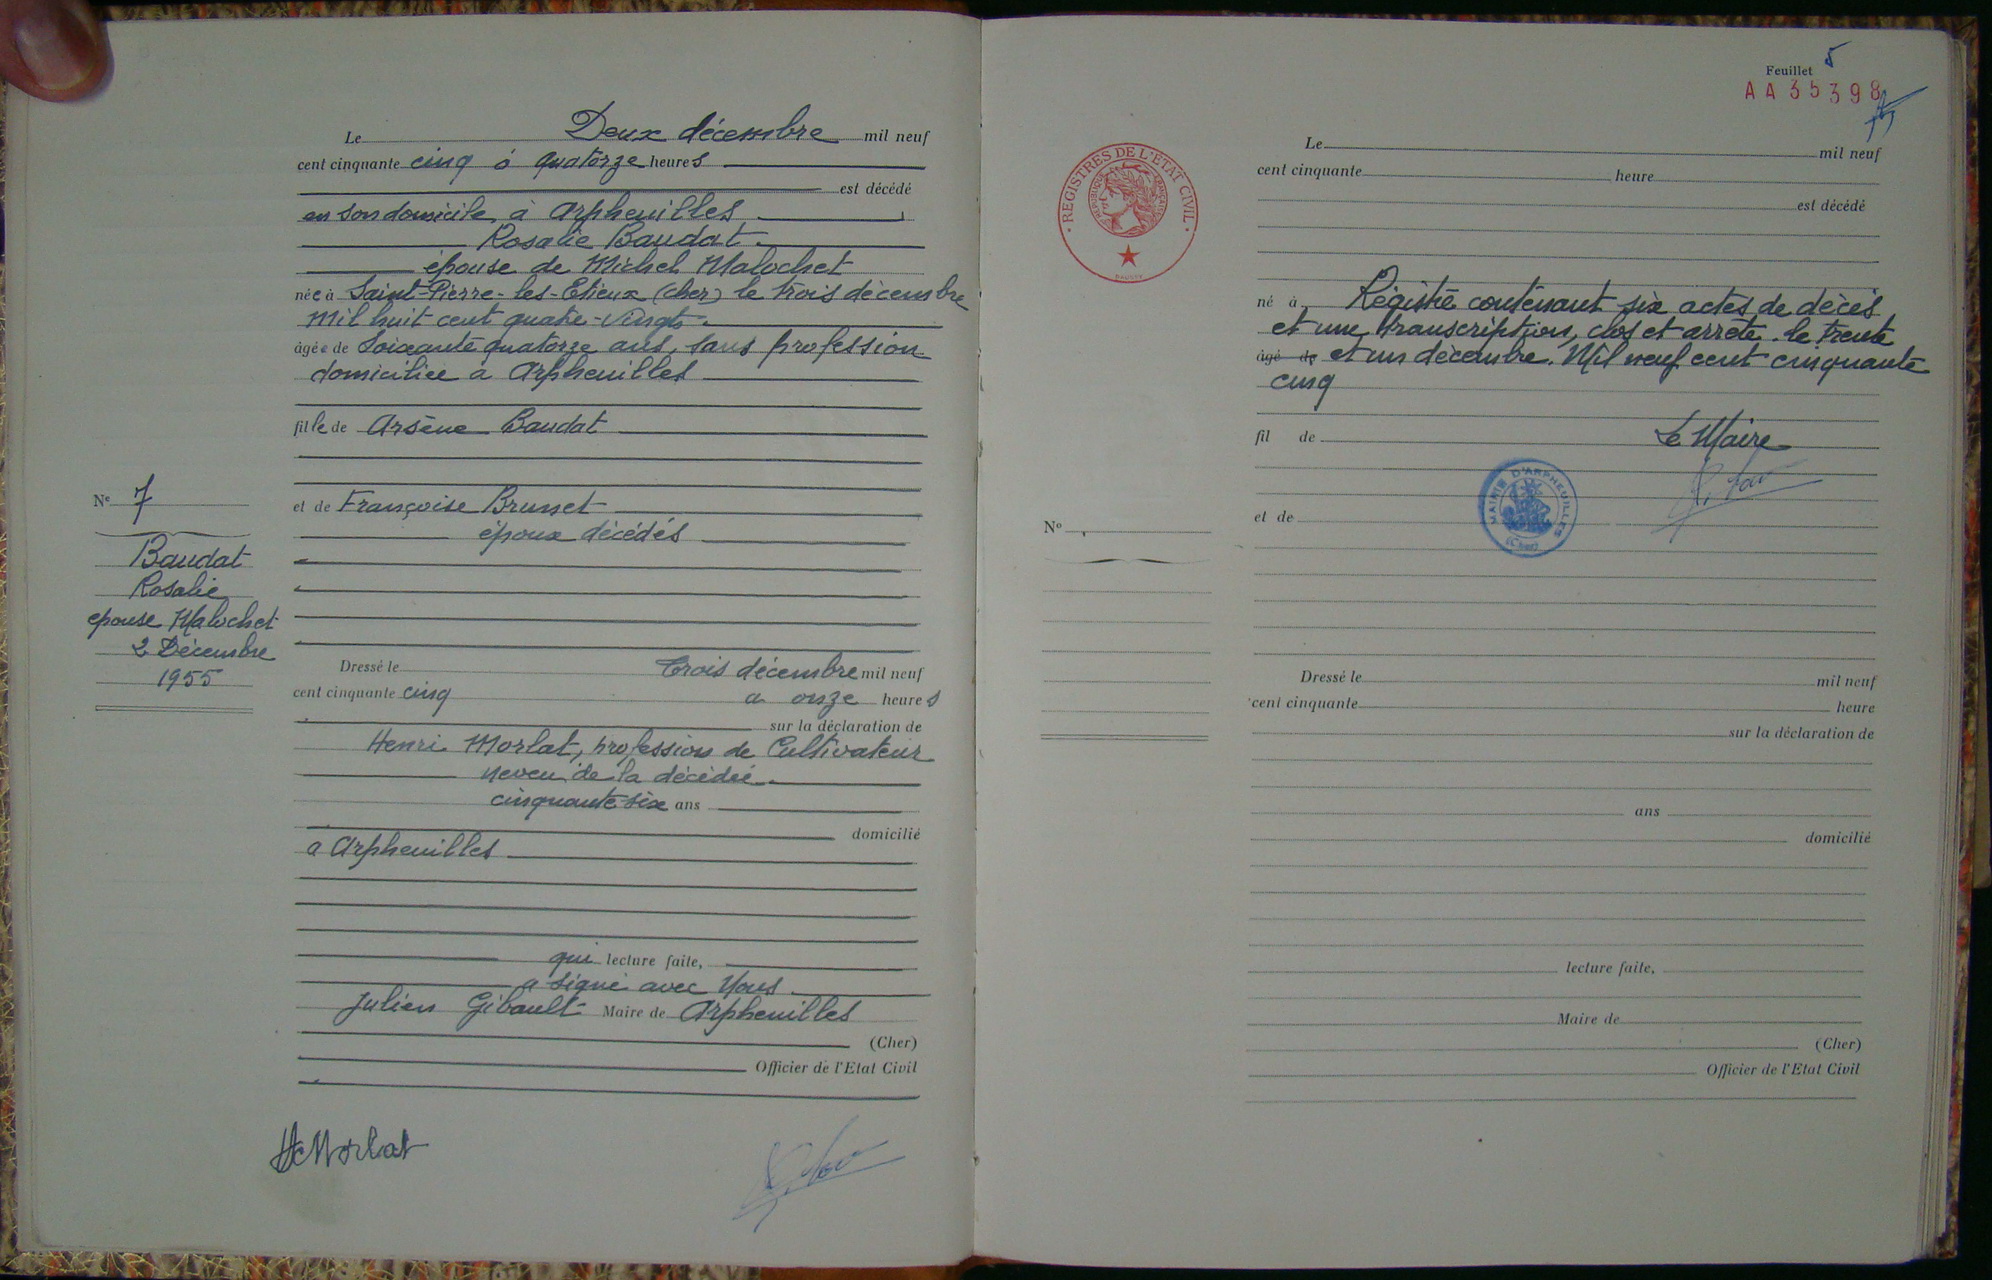 Le Deux décembre mil neuf
cent cinquante cinq à quatorze heures
est décédé
en son domicile à Arpheuilles
Rosalie Baudat
épouse de Michel Malochet
née à Saint-Pierre-les-Etieux (Cher) le trois décembre
mil huit cent quatre-vingts.
âgée de Soixante quatorze ans, sans profession
domiciliée à Arpheuilles
fille de Arsène Baudat
et de Françoise Brunet
époux décédés
N° 7
Baudat
Rosalie
épouse Malochet
2 Décembre
1955
Dressé le trois décembre mil neuf
cent cinquante cinq à onze heures
sur la déclaration de
Henri Morlat, profession de Cultivateur
neveu de la décédée.
cinquante six ans
domicilié
a Arpheuilles
qui lecture faite,
a signé avec Nous
Julien Gibault Maire de Arpheuilles
(Cher)
Officier de l'Etat Civil
H Morlat
Feuillet 5
AA 35398
REGISTRES DE L'ETAT CIVIL
Le mil neuf
cent cinquante heure
est décédé
né à Registre contenant six actes de décès
et une transcription, clos et arrêté le trente
âgé de et un décembre. Mil neuf cent cinquante
cinq
fil de Le Maire
MAIRIE D'ARPHEUILLES
(Cher)
et de
N°
Dressé le mil neuf
cent cinquante heure
sur la déclaration de
ans
domicilié
lecture faite,
Maire de
(Cher)
Officier de l'Etat Civil